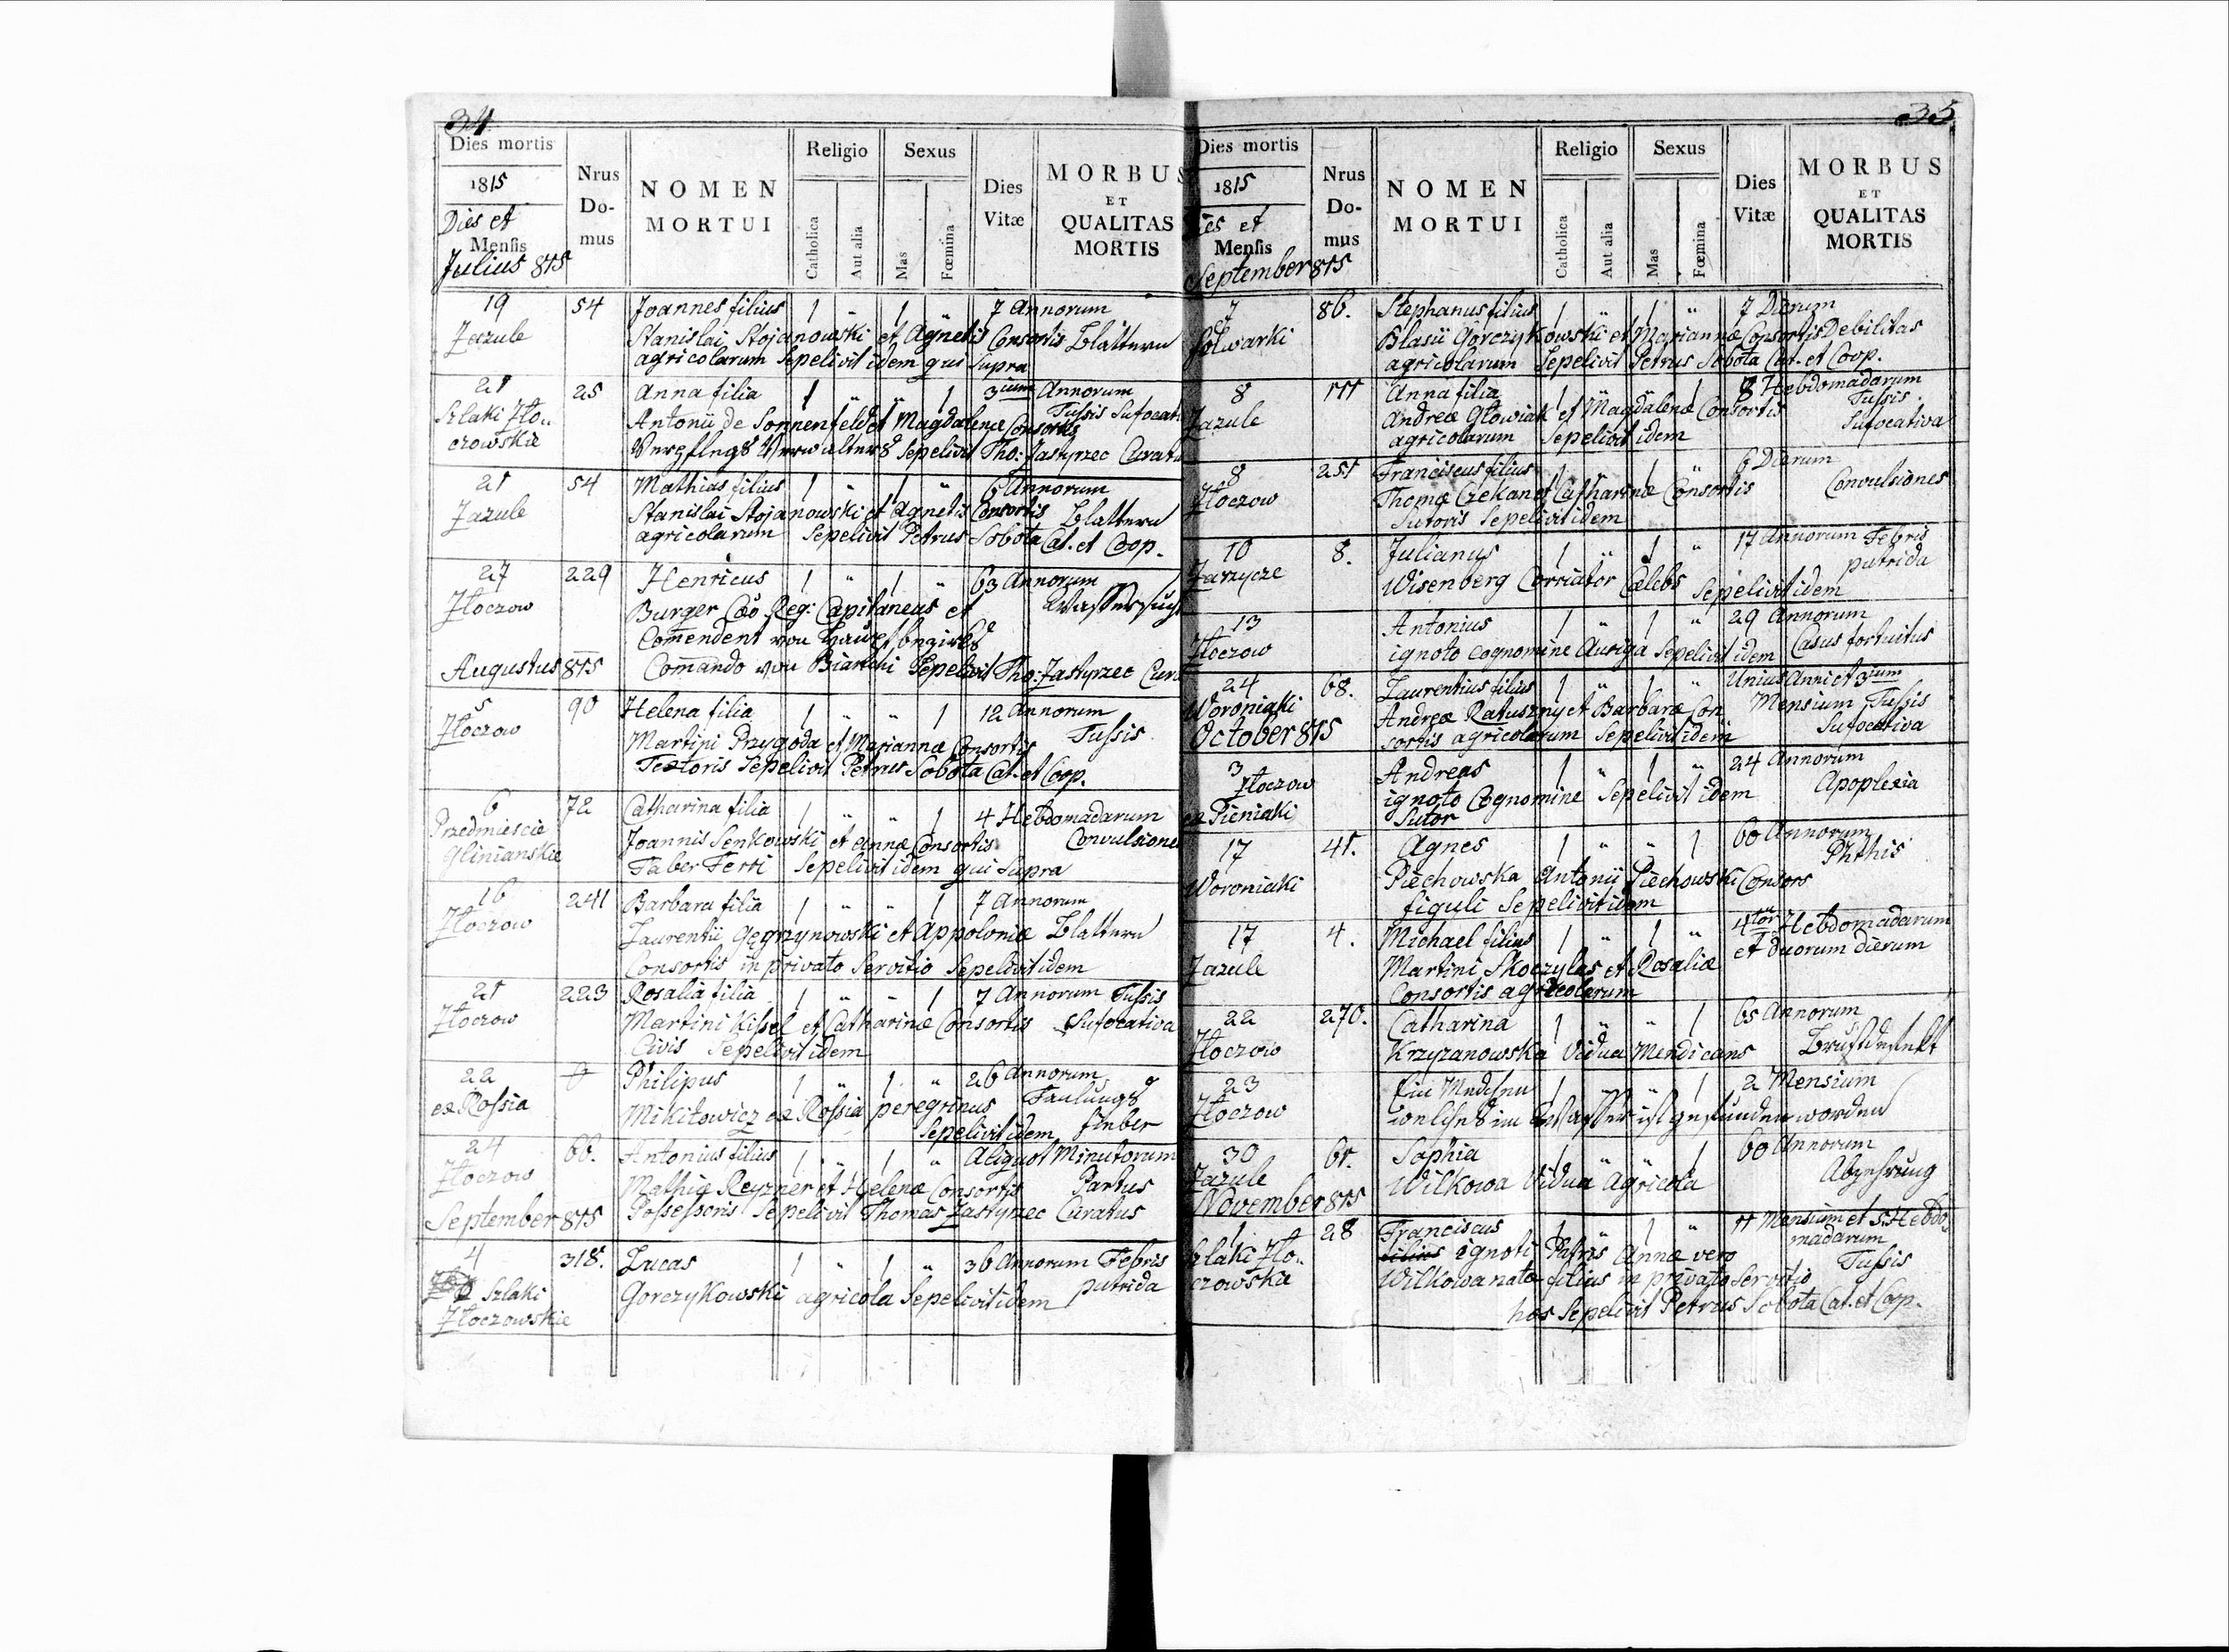 34
Dies mortis
1815
Dies et
Mensis
Julius 815
Nrus
Do-
mus
NOMEN
MORTUI
Religio
Catholica
Aut alia
Sexus
Mas
Fœmina
Dies
Vitæ
MORBUS
ET
QUALITAS
MORTIS
19 54 Joannes filius 1 " 1 " 7 Annorum
Zazule Stanislai Stojanowski et Agnetis Consortis Blattern
agricolarum Sepelivit idem qui Supra
21 25 Anna filia 1 " " 1 3ium Annorum
Szlaki Zło„ Antonii de Sonnenfeld et Magdalenæ Consortis Tussis Sufocati
czowskie Verpflegs Verwalters Sepelivit Tho: Zastyrzec Curatu
21 54 Mathias filius 1 " 1 " 6 Annorum
Zazule Stanislai Stojanowski et Agnetis Consortis Blattern
agricolarum Sepelivit Petrus Sobota Cat. et Coop.
27 229 Henricus 1 " 1 " 63 Annorum
Złoczow Burger Cæo Reg: Capitaneus et Wassersucht
Comendent von
Augustus 815 Comando von Bianchi Sepelivit Tho: Zastyrzec Cura
5 90 Helena filia 1 " " 1 12 Annorum
Złoczow Martini Przygoda et Mariannæ Consortis Tussis
Textoris Sepelivit Petrus Sobota Cat. et Coop.
6 72 Catharina filia 1 " " 1 4 Hebdomadarum
Przedmiescie Joannis Senkowski et Annæ Consortis Convulsione
Glinianskie Faber Ferri Sepelivit idem qui Supra
16 241 Barbara filia 1 " " 1 7 Annorum
Złoczow Laurentii Gęgrzynowski et Appoloniæ Blattern
Consortis in privato Servitio Sepelivit idem
21 223 Rosalia filia 1 " " 1 7 Annorum Tussis
Złoczow Martini Kissel et Catharinæ Consortis Sufocativa
Civis Sepelivit idem
22 Philipus 1 " 1 " 26 Annorum
ex Rossia Mikitowicz ex Rossia peregrinus Faulungs
Sepelivit idem fieber
24 66. Antonius filius 1 " 1 " Aliquot Minutorum
Złoczow Mathiæ Reyzner et Helenæ Consortis Partus
September 815 Possessoris Sepelivit Thomas Zastyrzec Curatus
4 318. Lucas 1 " 1 " 36 Annorum Febris
Szlaki Gorczykowski agricola Sepelivit idem putrida
Złoczowskie
35
Dies mortis
1815
Dies et
Mensis
September 815
Nrus
Do-
mus
NOMEN
MORTUI
Religio
Catholica
Aut alia
Sexus
Mas
Fœmina
Dies
Vitæ
MORBUS
ET
QUALITAS
MORTIS
7 86. Stephanus filius 1 " 1 " 7 Dierum
Folwarki Blasii Gorczykowski et Mariannæ Consortis Debilitas
agricolarum Sepelivit Petrus Sobota Cat. et Coop.
8 111 Anna filia 1 " " 1 8 Hebdomadarum
Zazule Andreæ Głowiak et Magdalenæ Consortis Tussis
agricolarum Sepelivit idem Sufocativa
8 251 Franciscus filius 1 " 1 " 6 Dierum
Złoczow Thomæ Czekan et Catharinæ Consortis Convulsiones
Sutoris Sepelivit idem
10 8. Julianus 1 " 1 " 17 Annorum Febris
Zarzycze Wisenberg Corriator Cælebs Sepelivit idem putrida
13 Antonius 1 " 1 " 29 Annorum
Złoczow ignoto cognomine Auriga Sepelivit idem Casus fortuitus
24 68. Laurentius filius 1 " 1 " Unius Anni et 3ium
Woroniaki Andreæ Ratuszny et Barbaræ Con Mensium Tussis
October 815 sortis agricolarum Sepelivit idem Sufocativa
3 Andreas 1 " 1 " 24 Annorum
Złoczow ignoto Cognomine Sepelivit idem Apoplexia
ex Pieniaki Sutor
17 41. Agnes 1 " " 1 60 Annorum
Woroniaki Piechowska Antonii Piechowski Consors Phthis
figuli Sepelivit idem
17 4. Michael filius 1 " 1 " 4tor Hebdomadarum
Zazule Martini Skoczylas et Rosaliæ et duorum dierum
Consortis agricolarum
22 270. Catharina 1 " " 1 65 Annorum
Złoczow Krzyzanowska Vidua Mendicans Brustdefekt
23 Ein Medchen 1 " " 1 2 Mensium
Złoczow welches im Wasser ist gefunden worden
30 61. Sophia 1 " " 1 60 Annorum
Zazule Wilkowa Vidua Agricola Abzehrung
November 815
1 28 Franciscus 1 " 1 " 11 Mensium et 3 Hebdo
Szlaki Zło„ filius ignoti Patris Annæ vero madarum
czowskie Wilkowa nato filius in privato Servitio Tussis
hos Sepelivit Petrus Sobota Cat. et Coop.